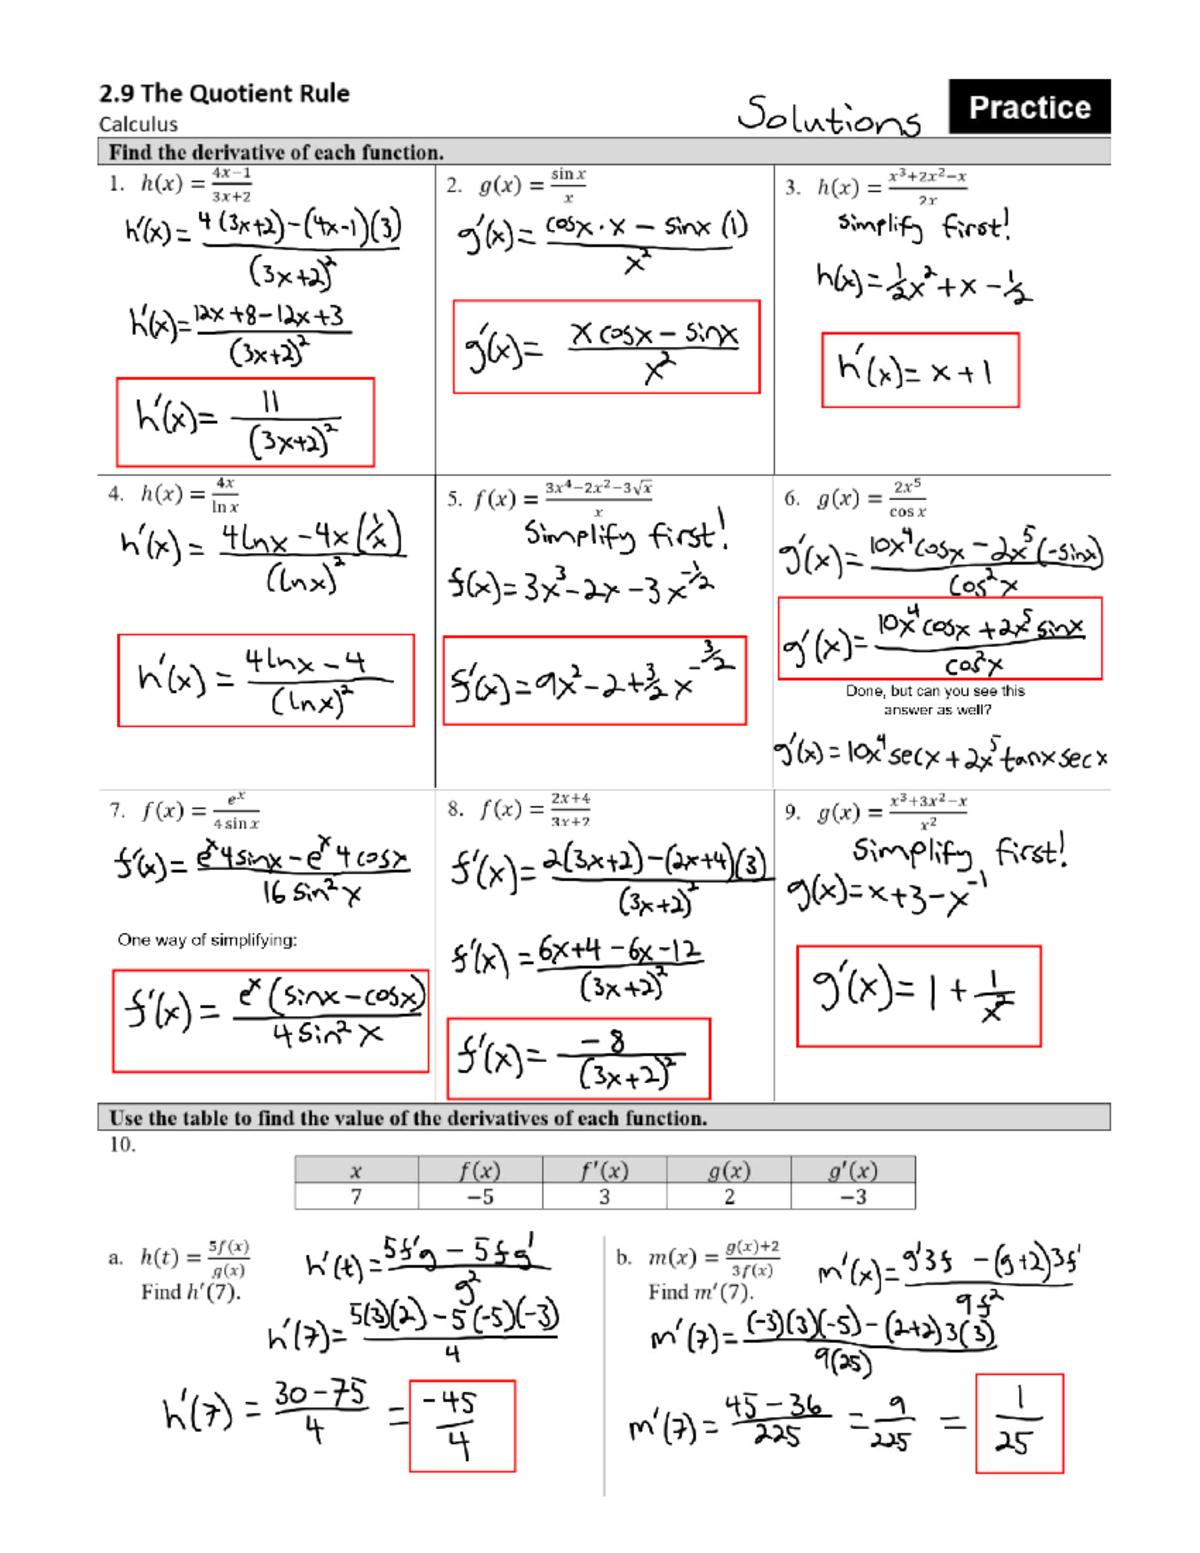 2.9 The Quotient Rule
Calculus
Solutions
Practice
Find the derivative of each function.
1. h(x) = (4x−1)/(3x+2)
h'(x) = (4(3x+2)−(4x-1)(3))/(3x+2)²
h'(x) = (12x+8−12x+3)/(3x+2)²
h'(x) = 11/(3x+2)²
2. g(x) = sin x/x
g'(x) = (cosx·x − sinx(1))/x²
g'(x) = (x cosx − sinx)/x²
3. h(x) = (x³+2x²−x)/2x
Simplify first!
h(x) = ½x² + x − ½
h'(x) = x + 1
4. h(x) = 4x/ln x
h'(x) = (4lnx − 4x(1/x))/(lnx)²
h'(x) = (4lnx − 4)/(lnx)²
5. f(x) = (3x⁴−2x²−3√x)/x
Simplify first!
f(x) = 3x³ − 2x − 3x^(-1/2)
f'(x) = 9x² − 2 + 3/2 x^(-3/2)
6. g(x) = 2x⁵/cos x
g'(x) = (10x⁴cosx − 2x⁵(-sinx))/cos²x
g'(x) = (10x⁴cosx + 2x⁵sinx)/cos²x
Done, but can you see this
answer as well?
g'(x) = 10x⁴secx + 2x⁵tanx secx
7. f(x) = eˣ/4 sin x
f'(x) = (eˣ4sinx − eˣ4cosx)/16 sin²x
One way of simplifying:
f'(x) = eˣ(sinx − cosx)/4 sin²x
8. f(x) = (2x+4)/(3x+2)
f'(x) = (2(3x+2)−(2x+4)(3))/(3x+2)²
f'(x) = (6x+4−6x−12)/(3x+2)²
f'(x) = −8/(3x+2)²
9. g(x) = (x³+3x²−x)/x²
Simplify first!
g(x) = x+3−x⁻¹
g'(x) = 1 + 1/x²
Use the table to find the value of the derivatives of each function.
10.
x f(x) f'(x) g(x) g'(x)
7 −5 3 2 −3
a. h(t) = 5f(x)/g(x)
Find h'(7).
h'(t) = (5f'g − 5fg')/g²
h'(7) = (5(3)(2) − 5(-5)(-3))/4
h'(7) = (30−75)/4 = -45/4
b. m(x) = (g(x)+2)/3f(x)
Find m'(7).
m'(x) = (g'3f − (g+2)3f')/9f²
m'(7) = ((-3)(3)(-5) − (2+2)3(3))/9(25)
m'(7) = (45−36)/225 = 9/225 = 1/25